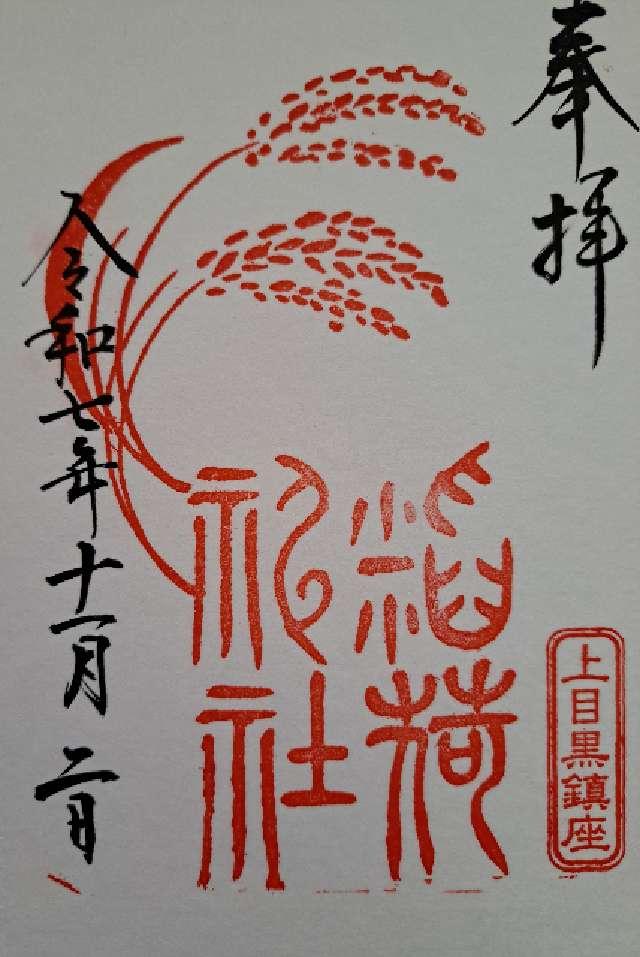 奉拝
上目黒鎮座
稲荷
祀社
令和七年十一月二日